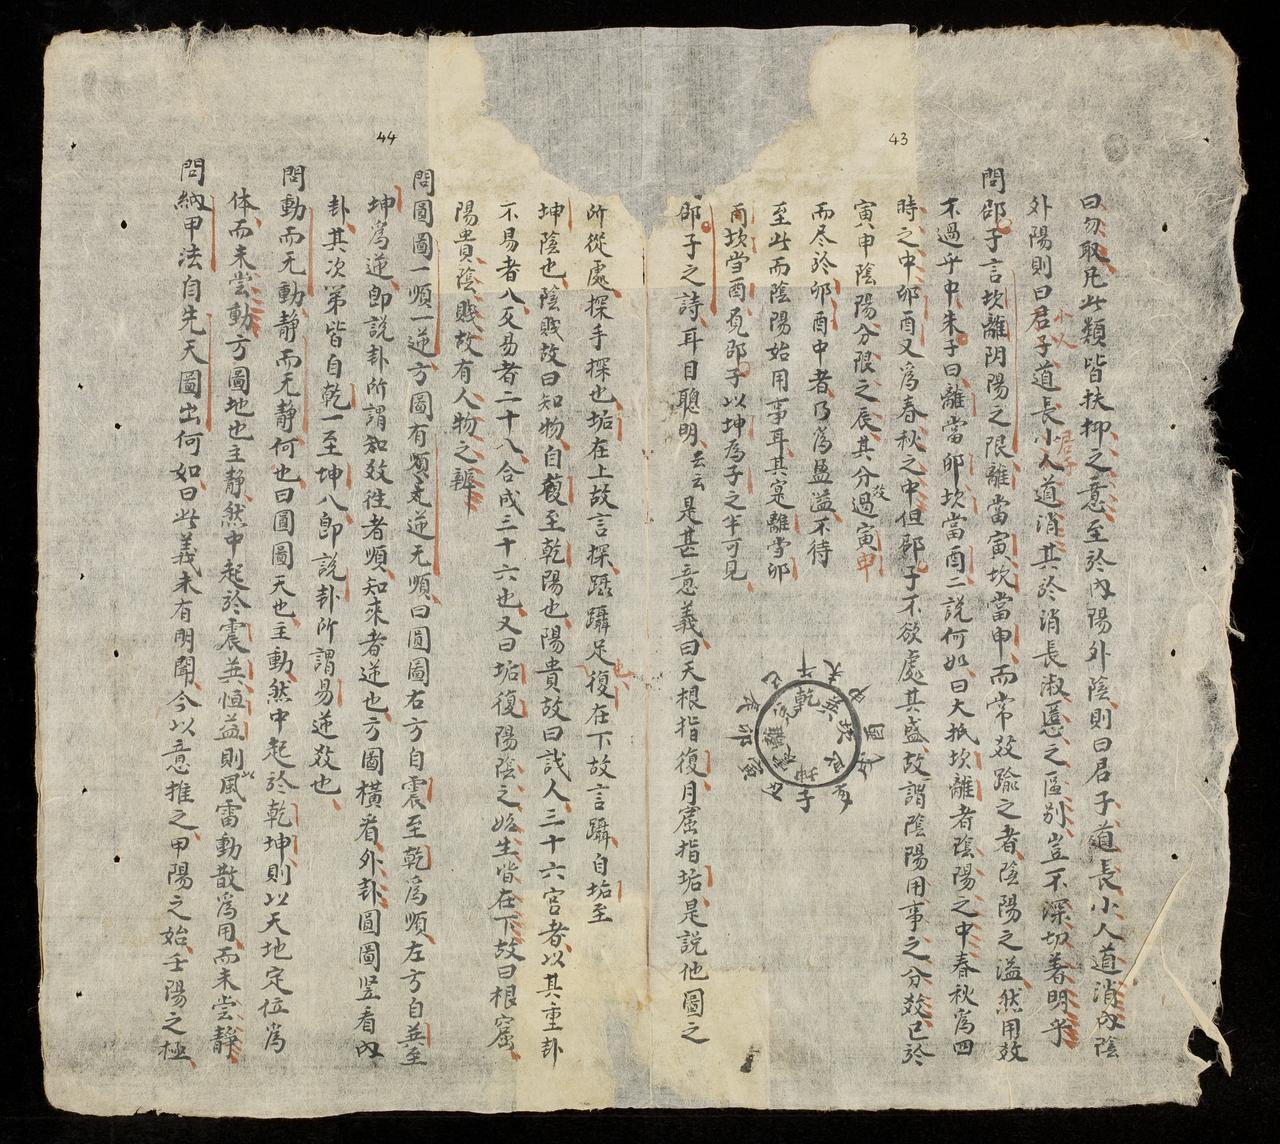 43
曰勿取凡此類皆扶抑之意至於內陽外陰則曰君子道長小人道消內陰
外陽則曰君子道長小人道消其於消長淑慝之區別豈不深切著明乎
小人
君子
問邵子言坎離阴陽之限離當寅坎當申而常交踰之者陰陽之溢然用數
不過乎中朱子曰離當卯坎當酉二說何如曰大抵坎離者陰陽之中春秋為四
時之中卯酉又為春秋之中但邵子不欲處其盛故謂陰陽用事之分數已於
寅申陰陽分限之辰其分過寅申
而尽於卯酉中者乃為盈溢不待
至此而陰陽始用事耳其寔離当卯
而坎当酉覔邵子以坤為子之半可見
邵子之詩耳目聰明云云是甚意義曰天根指復月窟指垢是說他圖之
乾
坎
坤
離
子
午
卯
酉
44
所從處探手探也垢在上故言探踩躡足復在下故言躡自垢至
也
坤陰也陰賎故曰知物自復至乾陽也陽貴故曰識人三十六宮者以其重卦
不易者八交易者二十八合成三十六也又曰垢復陽陰之始生皆在下故曰根窟
陽貴陰賎故有人物之辨
問圖圖一順一逆方圖有順无逆无順曰圓圖右方自震至乾為順左方自巽至
坤為逆卽說卦所謂数徃者順知來者逆也方圖橫看外卦圓圖竖看內
卦其次第皆自乾一至坤八卽說卦所謂易逆数也
問動而无動靜而无靜何也曰圓圖天也主動然中起於乾坤則以天地定位為
体而未尝動方圖地也主靜然中起於震巽恒益則以風雷動散為用而未尝靜
問納甲法自先天圖出何如曰此義未有明聞今以意推之甲陽之始壬陽之極